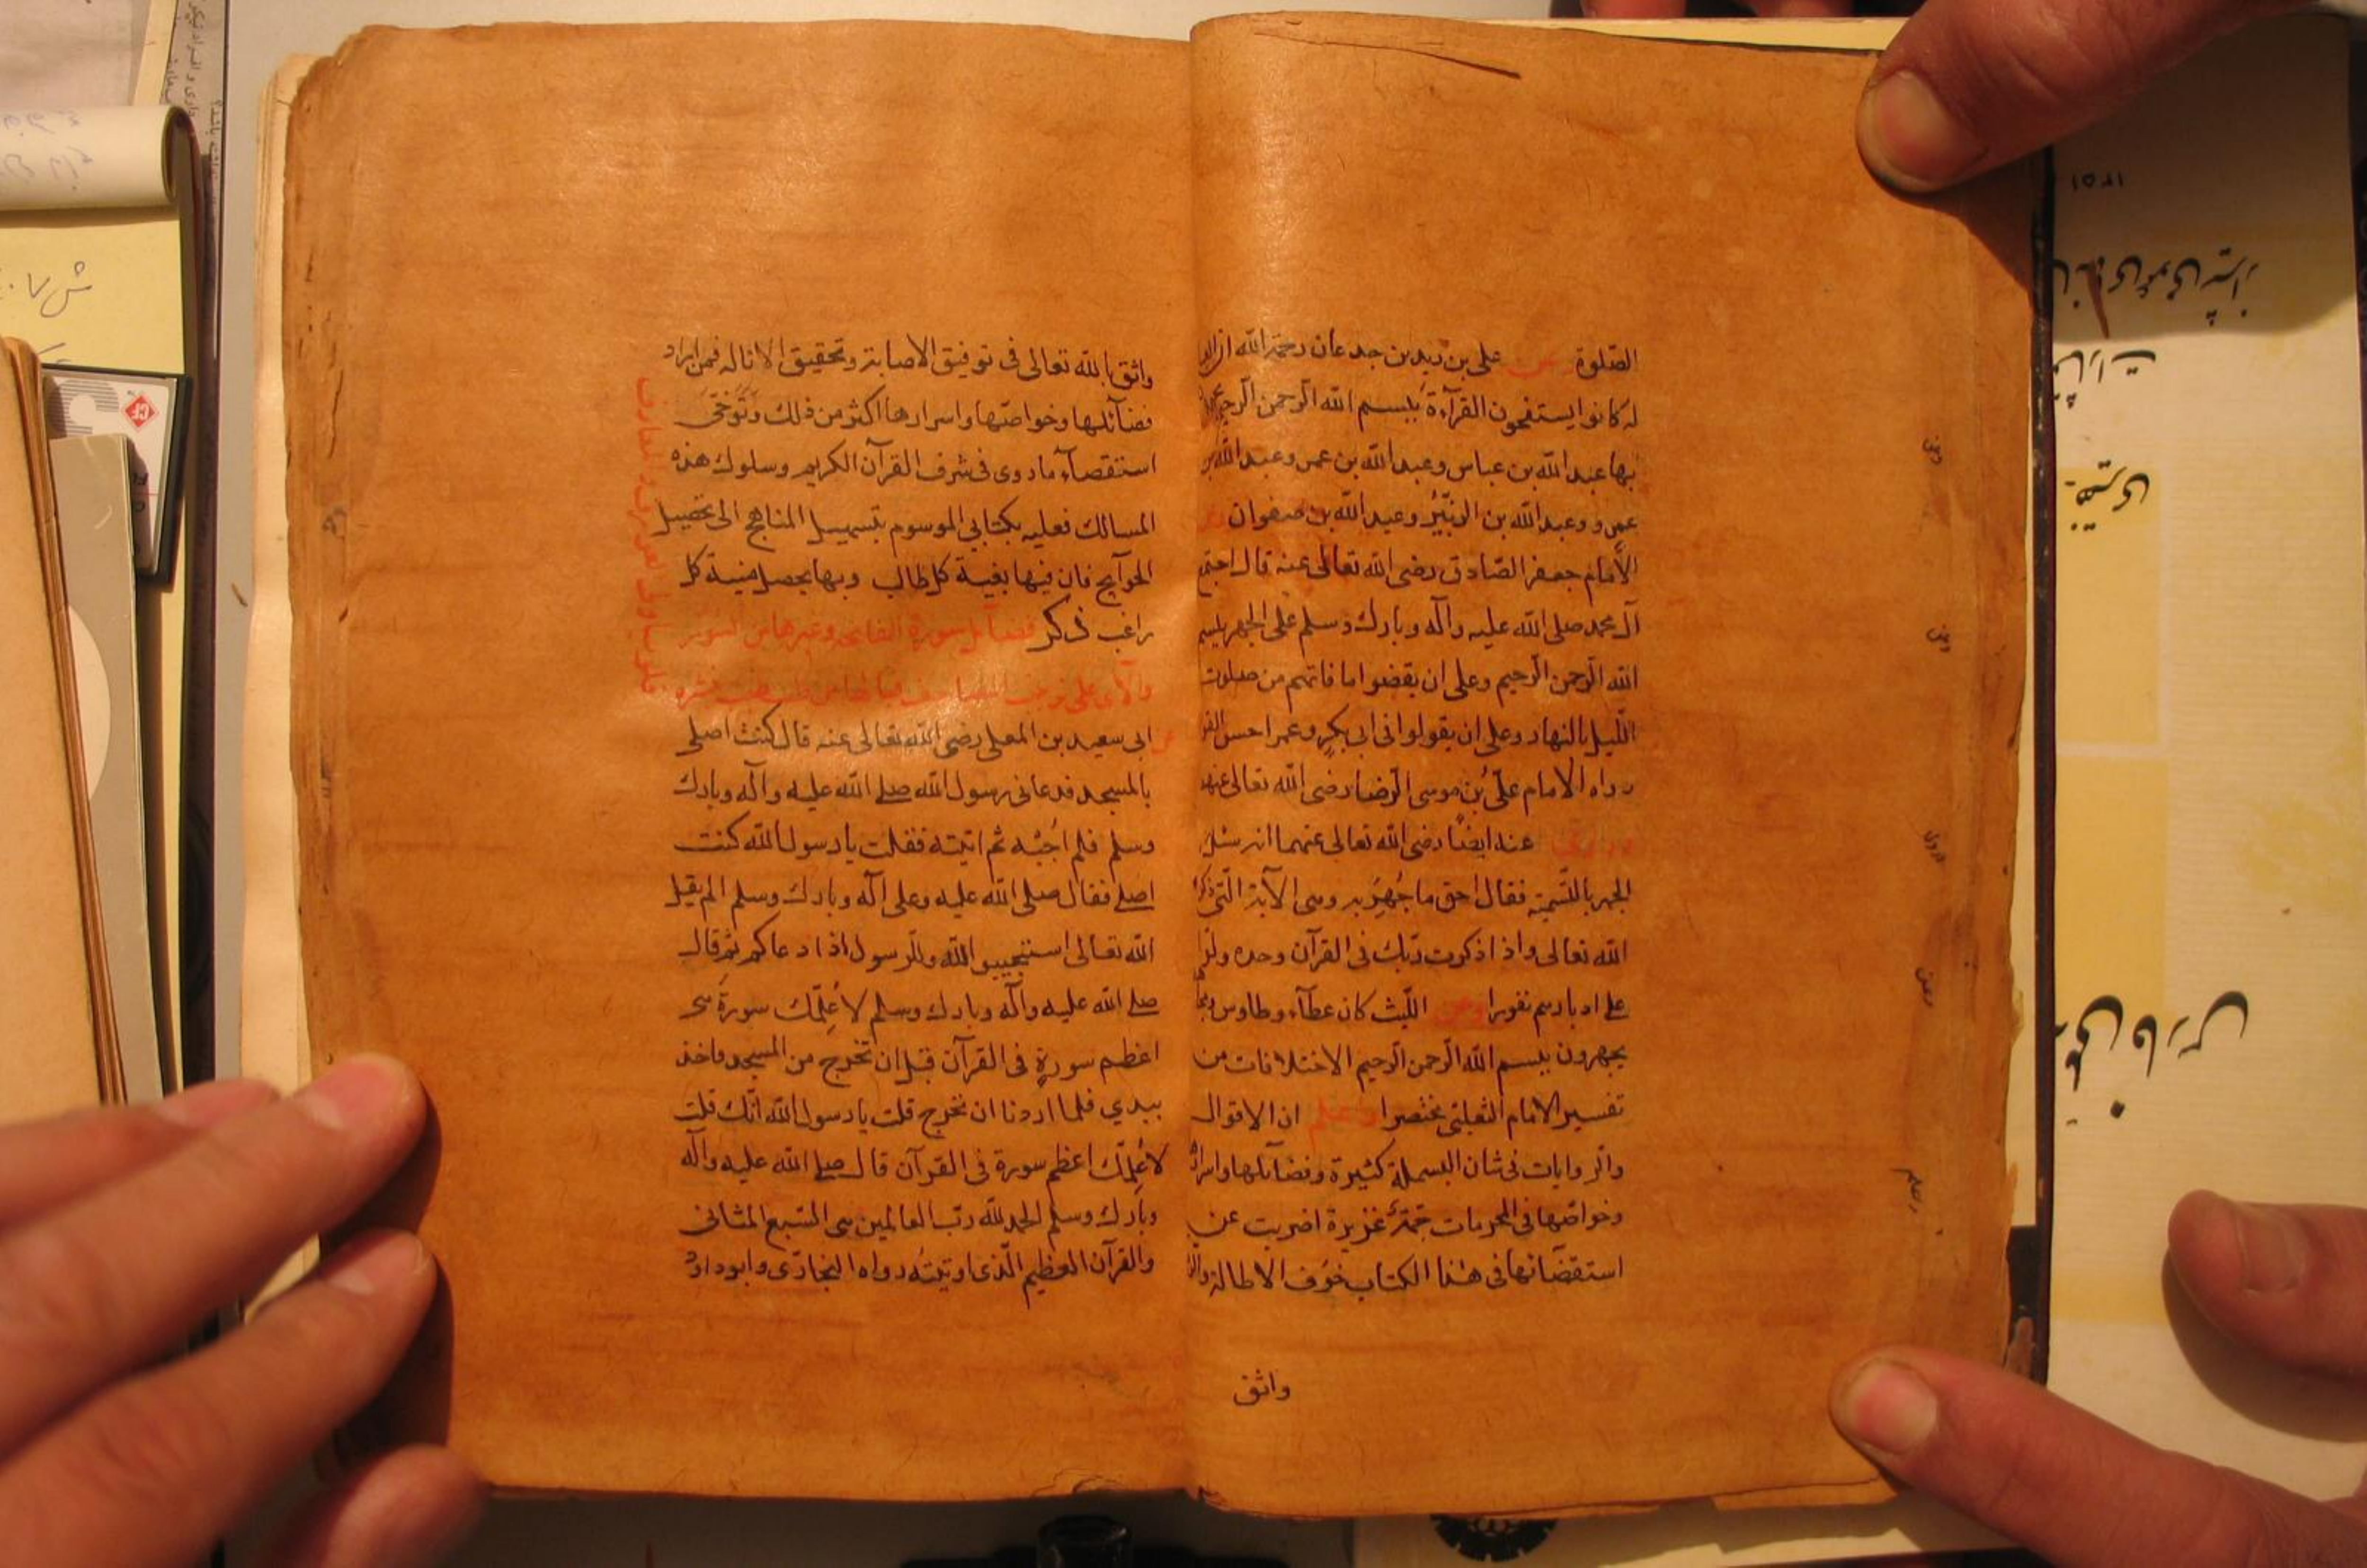 الصّلوة وعن علي بن زيد بن جدعان رحمة الله ان
له كانوا يستفتحون القرآءة ببسم الله الرحمن الرحيم
بها عبد الله بن عباس وعبد الله بن عمر وعبد الله بن
عمرو وعبد الله بن الزبير وعبد الله بن صفوان وعن
الامام جعفر الصّادق رضى الله تعالى عنه قال اجتمع
آل محمد صلى الله عليه وآله وبارك وسلم على الجهر ببسم
الله الرحمن الرحيم وعلى ان يقضوا ما فاتهم من صلوت
اللّيل بالنهار وعلى ان يقولوا فى ابى بكرٍ وعمر احسن القو
رواه الامام علىّ بن موسى الرّضا رضى الله تعالى عنهم
عنه ايضًا رضى الله تعالى عنهما انه سئل
الجهر بالتّسمية فقال احق ما جُهِرَ به وهى الآية الّتى ذكر
الله تعالى واذا ذكرت ربّك فى القرآن وحده ولّوا
على ادبارهم نفورا وعن اللّيث كان عطآء وطاوس
يجهرون ببسم الله الرحمن الرحيم الاختلافات من
تفسير الامام الثعلبى مختصرا واعلم ان الاقوال
والروايات فى شان البسملة كثيرة وفضآئلها واسرار
وخواصّها فى المجربات جمّة غزيرة اضربت عن
استقصآئها فى هذا الكتاب خوف الاطالة
واثق
واثق بالله تعالى فى توفيق الاصابة وتحقيق الانالة فمن اراد
فضآئلها وخواصّها واسرارها اكثر من ذلك وتَوَخّى
استقصآء ما روى فى شرف القرآن الكريم وسلوك هذه
المسالك فعليه بكتابى الموسوم بتسهيل المناهج الى تحصيل
الحوآيج فان فيها بغية كل طالب وبها يحصل منية كل
راغب ذكر فضآئل سورة الفاتحة وغيرها من السور
والآى على
عن ابى سعيد بن المعلى رضى الله تعالى عنه قال كنت اصلى
بالمسجد فدعانى رسول الله صلى الله عليه وآله وبارك
وسلم فلم اُجبْه ثم اتيته فقلت يا رسول الله كنت
اصلى فقال صلى الله عليه وعلى آله وبارك وسلم الم يقل
الله تعالى استجيبوا لله وللرسول اذا دعاكم ثم قال
صلى الله عليه وآله وبارك وسلم لاُعلّمنّك سورة هى
اعظم سورةٍ فى القرآن قبل ان تخرج من المسجد فاخذ
بيدي فلما اردنا ان نخرج قلت يا رسول الله انّك قلت
لاُعلمنّك اعظم سورة فى القرآن قال صلى الله عليه وآله
وبارك وسلم الحمد لله ربّ العالمين هى السّبع المثانى
والقرآن العظيم الّذى اوتيتُه رواه البخارىّ وابو داود